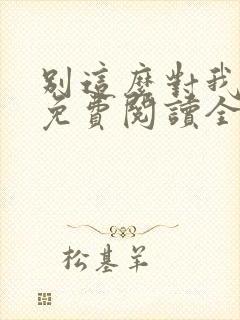 別這麼對我
免費閱讀全
松基羊